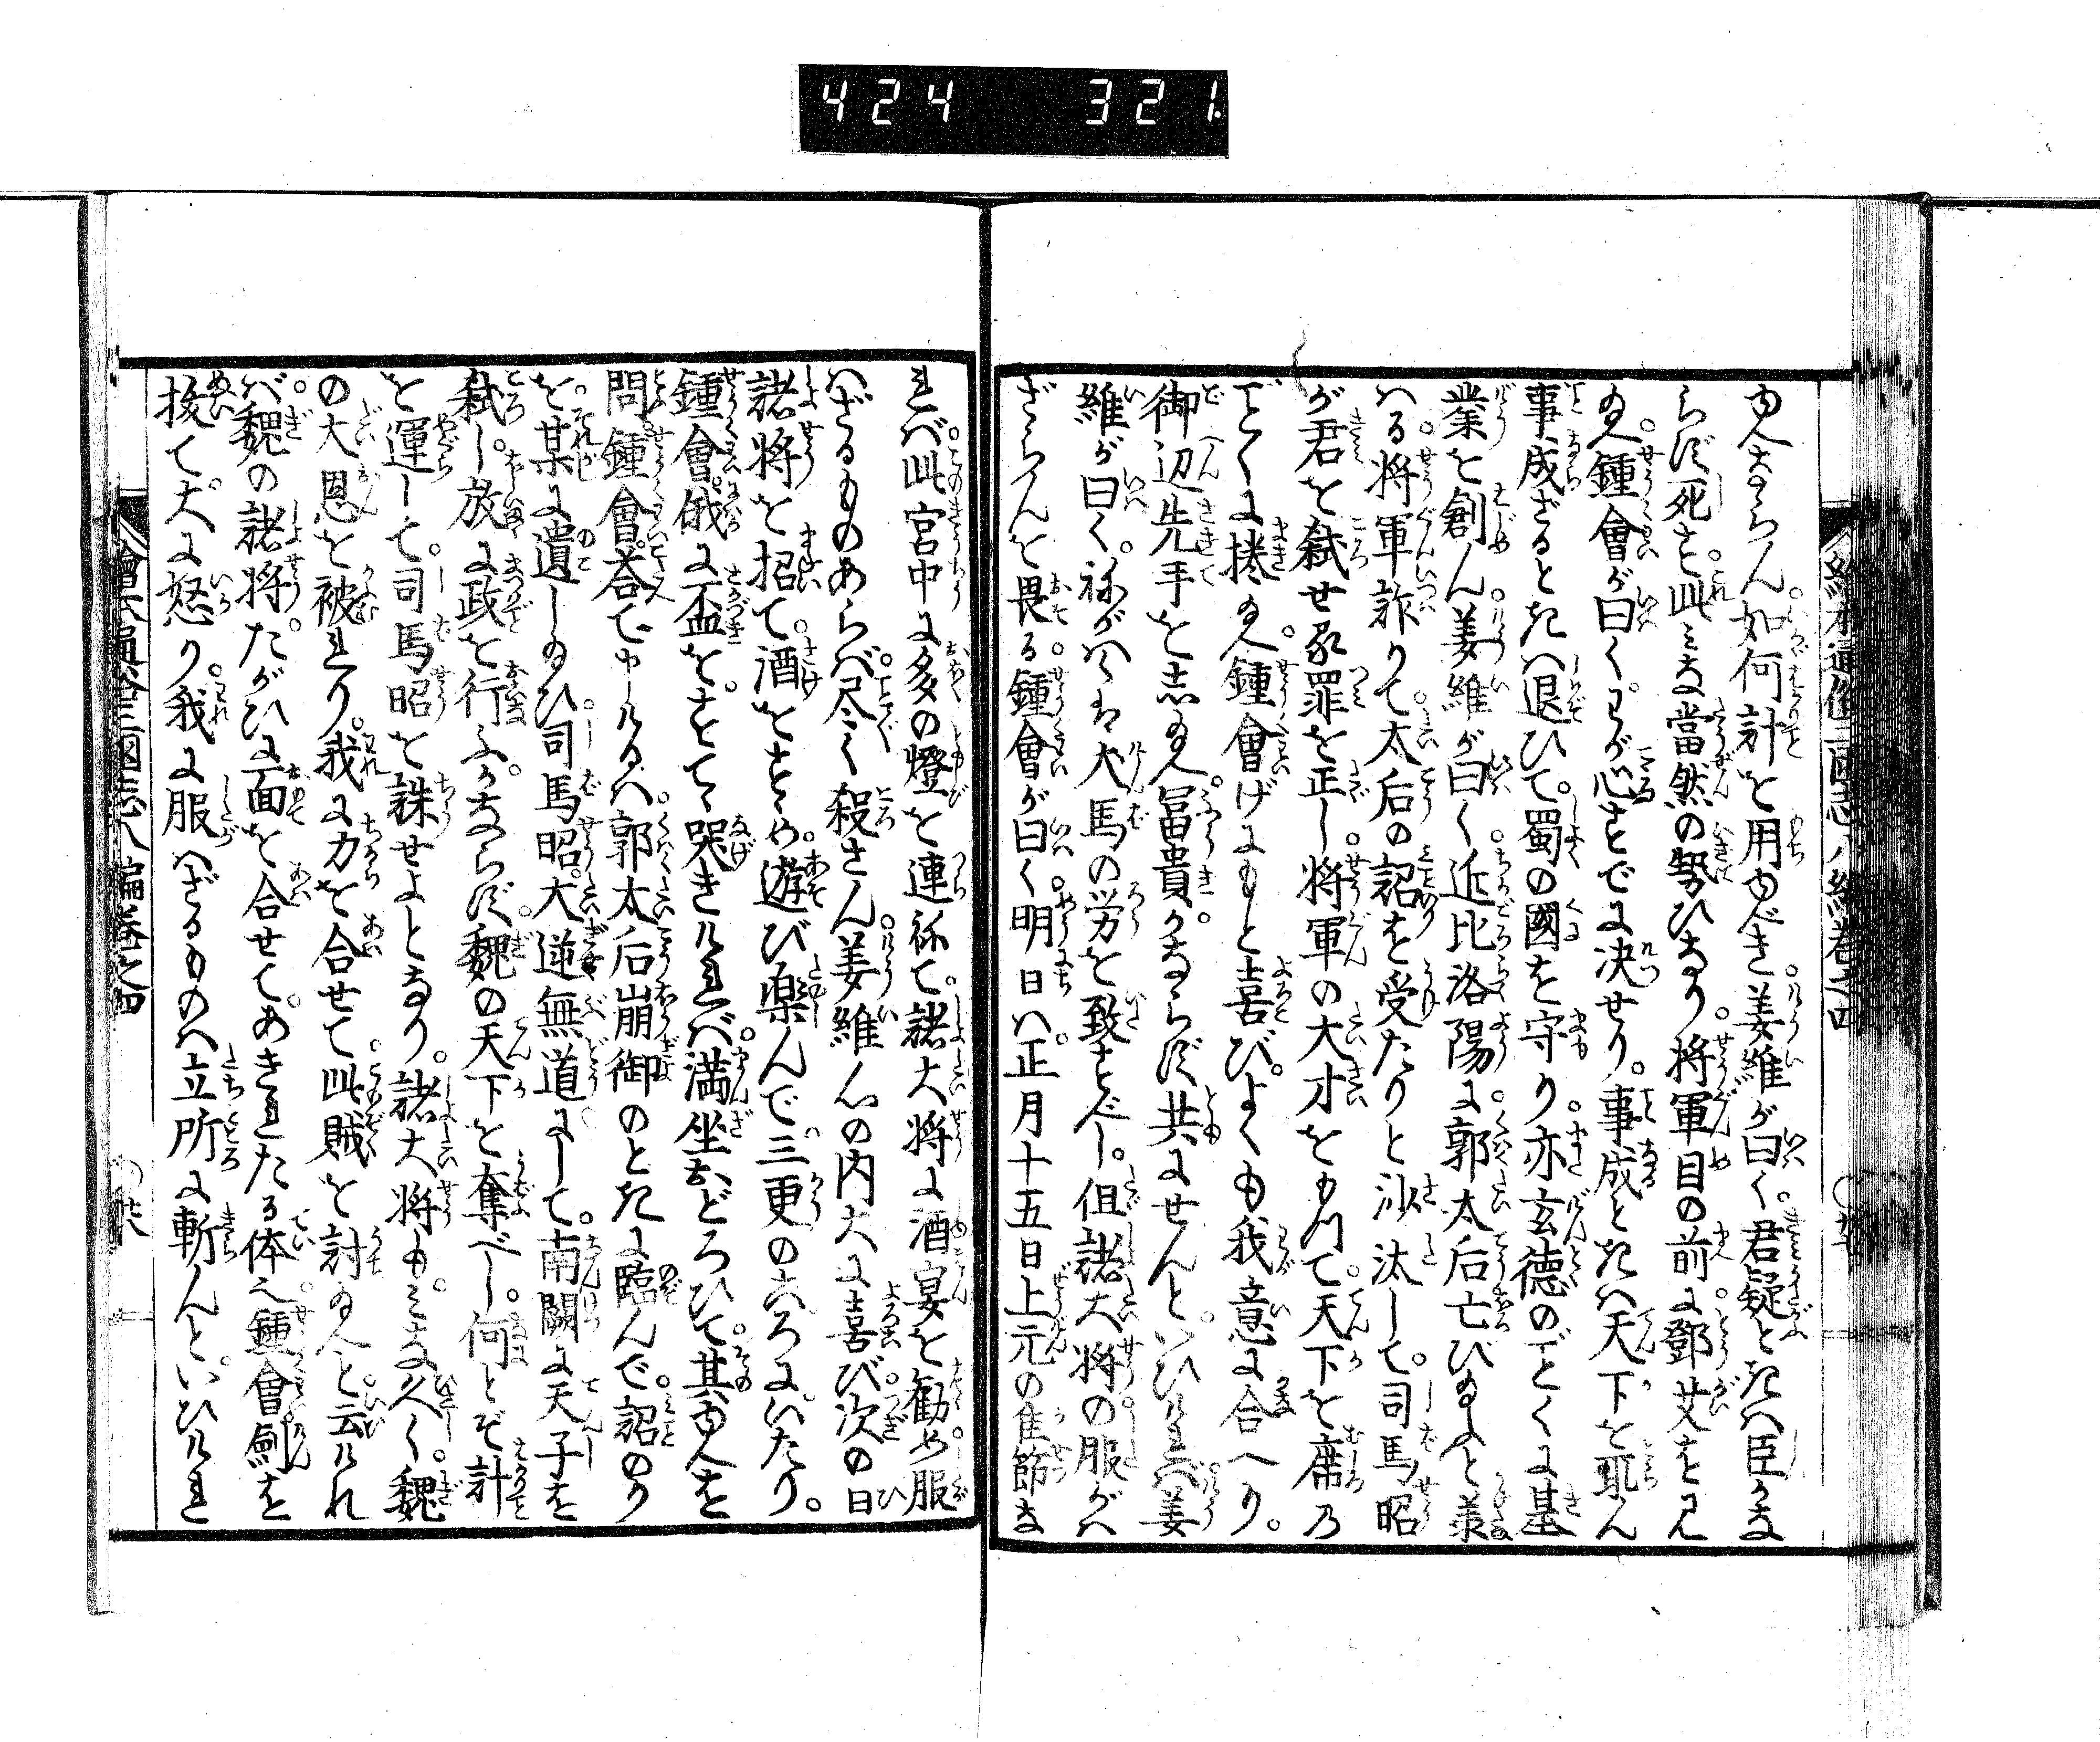 424 321.
繪本通俗三國志八編巻之四
ゆへならん。如何計を用ゆべき。姜維が曰く。君疑ときハ臣かな
らず死す。此みな當然の勢ひなり。将軍目の前に鄧艾を見
給へ。鍾會が曰く。わが心すでに決せり。事成ときハ天下を取ん
事成ざるときハ退ひて。蜀の國を守り。亦玄徳のごとくに基
業を創ん。姜維が曰く。近比洛陽に。郭太后亡び給ふと羕
ハる。将軍詐りて。太后の詔を受たりと沙汰して。司馬昭
が君を弑せる罪を正し。将軍の大才をもつて。天下を席の
ごとくに捲給へ。鍾會げにもと喜び。よくも我意に合へり。
御辺先手を志給へ。冨貴かならず共にせんと。いひければ姜
維が曰く。祢がハくハ犬馬の労を致すべし。但諸大将の服ガハ
ざらんを畏る。鍾會が曰く。明日ハ正月十五日上元の佳節な
れバ。此宮中に多の燈を連祢て。諸大将に酒宴を勧め。服
ハざるものあらバ。尽く殺さん。姜維心の内大に喜び。次の日
諸将を招て。酒をすゝめ。遊び楽んで。三更のころにいたり。
鍾會。俄に盃をすてゝ哭きければ。満坐おどろひて。其ゆへを
問。鍾會答て申しけるハ。郭太后崩御のときに臨んで。詔のり
を。某に遺し給ひ。司馬昭。大逆無道にして。南闕に天子を
弑し。放に政を行ふ。かならず。魏の天下を奪べし。何とぞ計
を運して。司馬昭を誅せよとなり。諸大将も。みな久く。魏
の大恩を被れり。我に力を合せて。此賊を討給へと。云けれ
バ。魏の諸将。たがひに面を合せて。あきれたる体也。鍾會。劍を
抜て。大に怒り。我に服ハざるものハ。立所に斬んと。いひけれ
繪本通俗三國志八編巻之四 廿八